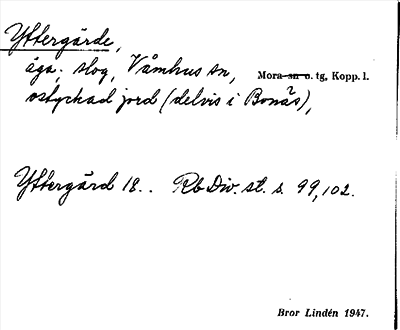 Yttergärde,
äga; slog, Våmhus sn, Mora sn o. tg, Kopp. l.
ostyckad jord (delvis i Bonäs?),
Yttergärd 18.. Rb Div. st. s. 99, 102.
Bror Lindén 1947.